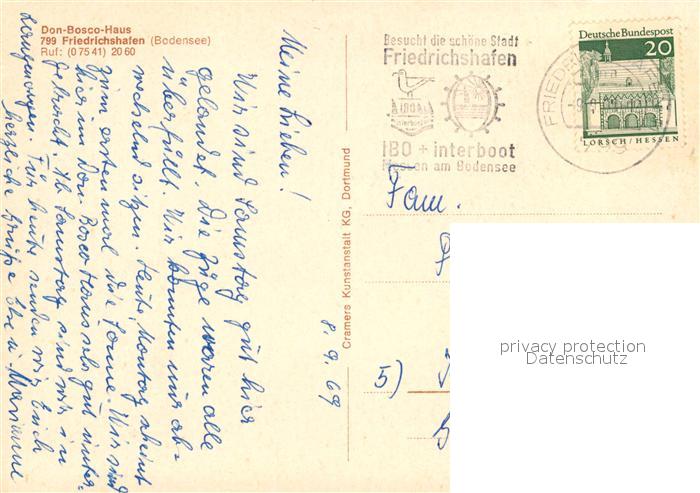 Don-Bosco-Haus
799 Friedrichshafen (Bodensee)
Ruf: (0 75 41) 20 60
Meine Lieben!
Wir sind Samstag gut hier
gelandet. Die Züge waren alle
überfüllt. Wir konnten nur ab-
wechselnd sitzen. Heute, Montag scheint
zum ersten mal die Sonne. Wir sind
hier im Don Bosco Haus sehr gut unter-
gebracht. Ab Samstag sind wir in
Langenargen. Für heute senden wir Euch
herzliche Grüße Eure Marianne
8. 9. 69
Cramers Kunstanstalt KG, Dortmund
Besucht die schöne Stadt
Friedrichshafen
IBO
interboot
IBO + interboot
Messen am Bodensee
Deutsche Bundespost
20
LORSCH/HESSEN
Fam.
5)
privacy protection
Datenschutz